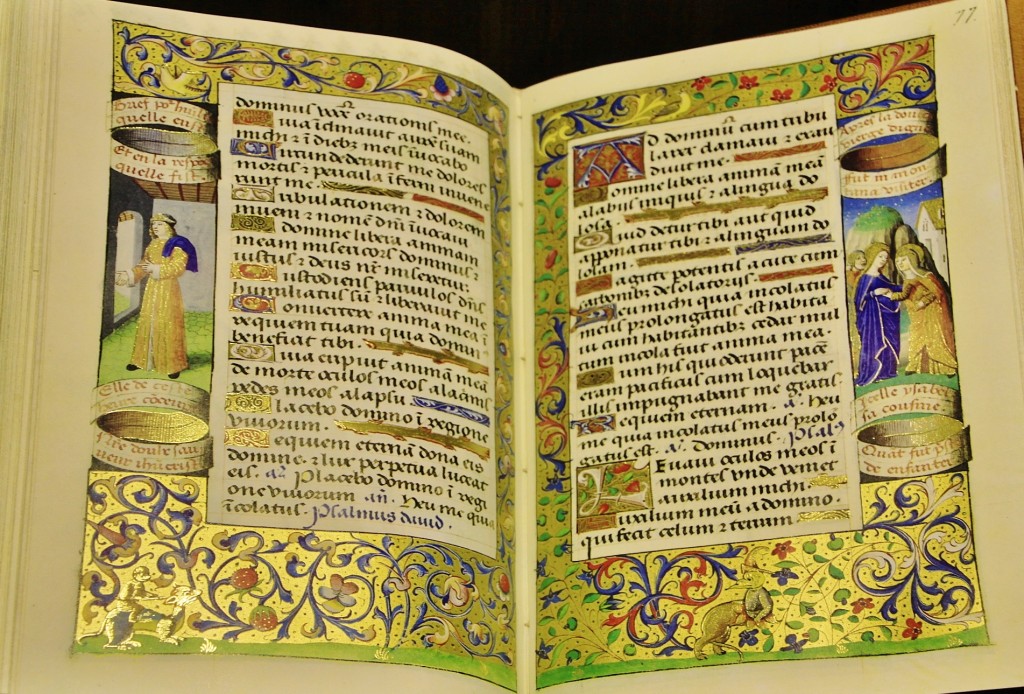 dominus voce orationis mee.
Quia ĩclinauit aurẽ suam
michi ⁊ ĩ diebz meis ĩuocabo
Circundederunt me dolores
mortis ⁊ pericula ĩferni inuene
runt me.
Tribulationem ⁊ dolorem
inueni ⁊ nomẽ dñi ĩuocaui
O domine libera animam
meam misericors dominus ⁊
iustus ⁊ deus nr̃ miseretur:
Custodiens paruulos dñs
humiliatus sũ ⁊ liberauit me
Conuertere anima mea ĩ
requiem tuam quia domin
benefiat tibi.
Quia eripuit animã meã
de morte oculos meos a lacrimis
pedes meos a lapsu.
Placebo domino ĩ regione
viuorum.
Requiem eternã dona eis
domine. ⁊ lux perpetua luceat
eis. añ. Placebo domino ĩ regi
one viuorum añ. Heu me quia
ĩcolatus. Psalmus dauid.
quelle eust
Et en la
quelle fist
Elle de ceste
77
AD dominũ cum tribu
larer clamaui ⁊ exau
diuit me.
Domine libera animã meã
a labiis iniquis ⁊ a lingua do
losa.
Quid detur tibi aut quid
apponatur tibi ⁊ a linguam do
lolam.
Sagitte potentis acute cum
carbonibz desolatoriis.
Heu michi quia incolatus
meus prolongatus est habita
ui cum habitantibz cedar mul
tum incola fuit anima mea.
Cum his qui oderunt pacẽ
eram pacificus cum loquebar
illis impugnabant me gratis.
Requiem eternam. añ. Heu
me quia incolatus meus prolõ
gatus est. añ. Dominus. Psal⁹
LEuaui oculos meos ĩ
montes vnde veniet
auxilium michi.
Auxilium meũ a domino.
qui fecit celum ⁊ terram.
Apres la doulce
vierge digne
fut in mon
tana visiter
celle ysabel
sa cousine
Quãt fut
de enfanter